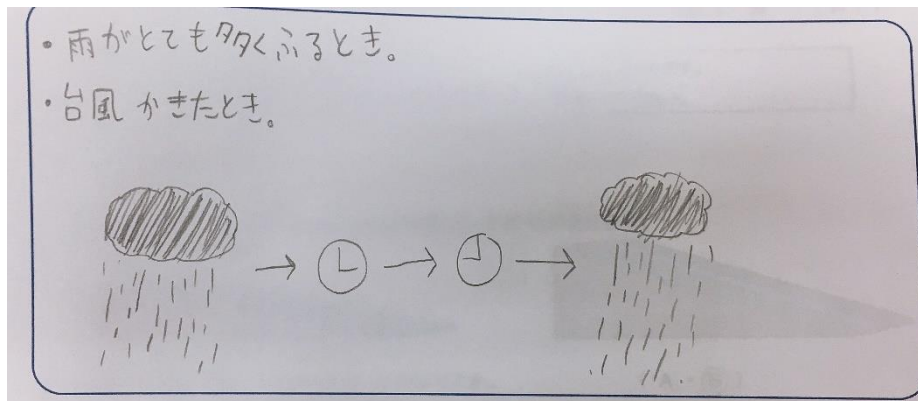 ・雨がとても多くふるとき。
・台風かきたとき。